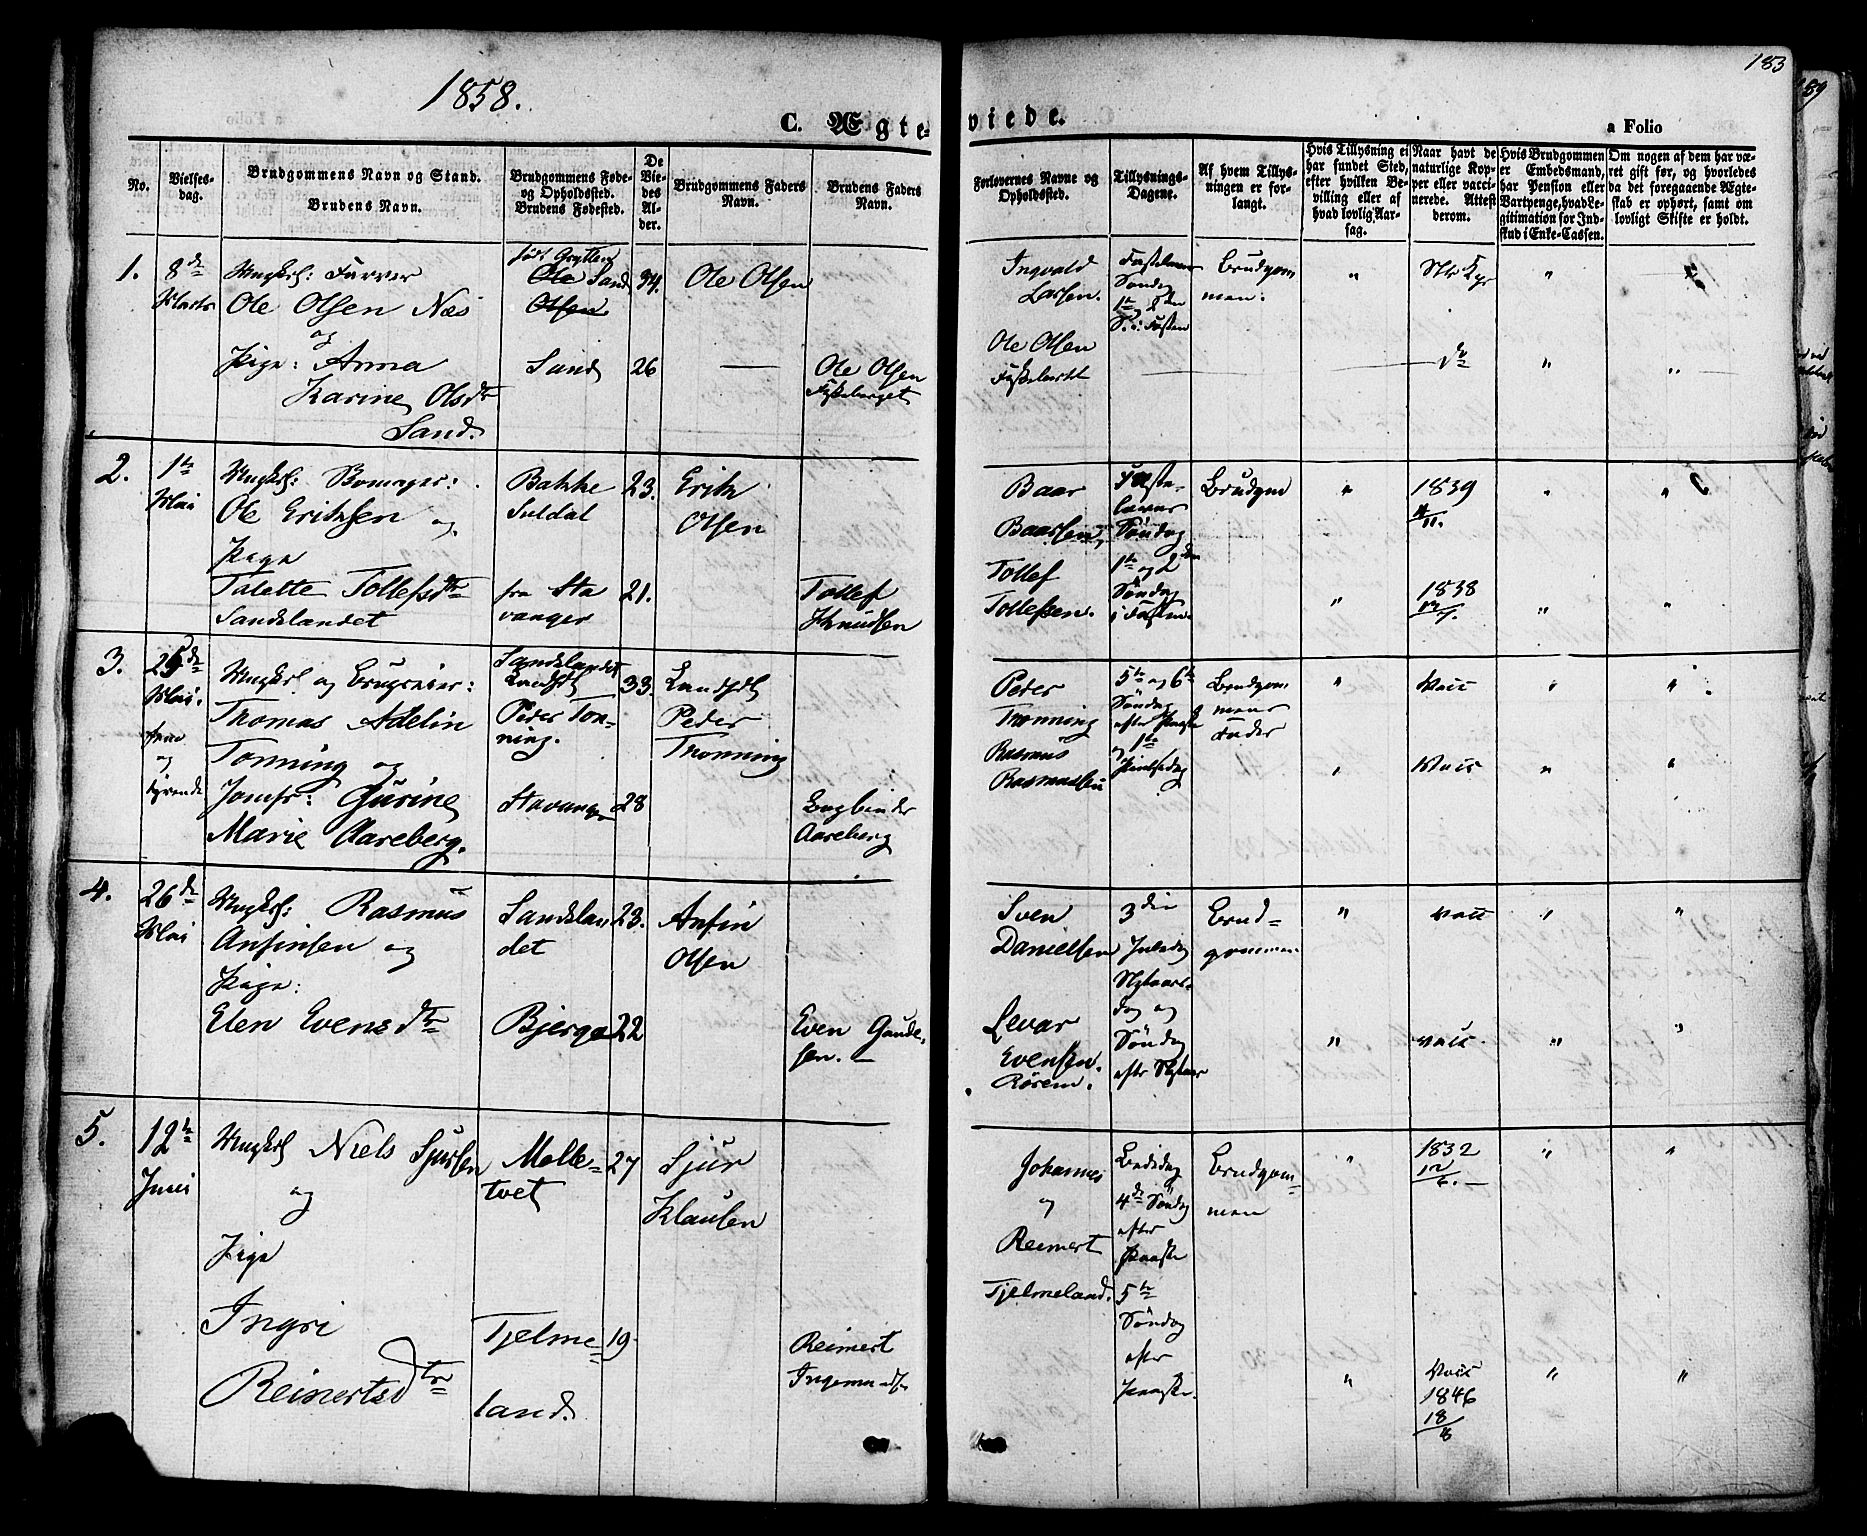 1858.
183
189
C. Ægte-
viede.
a Folio
No.
Vielses-
dag.
Brudgommens Navn og Stand.
Brudens Navn.
Brudgommens Føde-
og Opholdssted.
Brudens Fødested.
De
Vie-
des
Al-
der.
Brudgommens Faders
Navn.
Brudens Faders
Navn.
Forlovernes Navne og
Opholdssted.
Tillysnings-
Dagene.
Af hvem Tillys-
ningen er for-
langt.
Hvis Tillysning ei
har fundet Sted,
efter hvilken Be-
villing eller af
hvad lovlig Aar-
sag.
Naar havt de
naturlige Kop-
per eller vacci-
nerede. Attest
derom.
Hvis Brudgommen
er Embedsmand,
har Pension eller
Vartpenge, hvad Le-
gitimation for Ind-
skud i Enke-Cassen.
Om nogen af dem har væ-
ret gift før, og hvorledes
da det foregaaende Ægte-
skab er ophørt, samt om
lovligt Skifte er holdt.
1.
8de
Marts
Ungkrl: Farver
Ole Olsen Næs
og
Pige: Anna
Karine Olsdtr
Sand.
Ole Sand
Olsen
Sand
34.
26
Ole Olsen
Ole Olsen
Ingvald
Larsen.
Ole Olsen
Fastelavns
Søndag
1te og 2den
S. i Fasten
Brudgom
men.
"
do
"
"
"
2.
1te
Mai
Ungkrl:
Ole Eriksen og
Pige
Talette Tollefsdtr
Sandslandet
Bakke
Suldal
fra Sta
vanger
23.
21.
Erik
Olsen
Tollef
Knudsen
Baar
Baarsen,
Tollef
Tollefsen.
Faste-
lavns
Søndag
1te og 2den
Søndag
i Fasten.
Brudgom
"
"
1839
1838
"
"
"
"
3.
25de
Mai.
Ungkrl og
Thomas Adelin
Tonning og
Jomfr: Gurine
Marie Aareberg.
Sandslandet
Peder Ton-
ning.
Stavanger
33.
28
Peder
Tronning
Bogbinder
Aareberg
Peder
Tronning
Rasmus
Rasmussen
5te og 6te
Søndag
efter Paaske
og 1te
Pintsedag
Brudgom
mens
Fader
"
"
Vacc
Vacc
"
"
"
"
4.
26de
Mai
Ungkrl: Rasmus
Anfinsen og
Pige:
Elen Evensdtr
Sandslan
det
Bjerge
23.
22
Anfin
Olsen
Even Gunde-
sen. —
Sven
Danielsen
Levar
Evensen.
Rørem.
3die
Juledag
Nytaars-
dag og
Søndag
efter Nytaar
Brud-
gommen
"
"
Vacc
Vacc.
"
"
"
"
5.
12te
Juni
Ungkrl Niels Sjursen
og
Pige
Ingri
Reinertsdtr
Molle-
tvet
Tjelme-
land.
27
19.
Sjur
Klausen
Reimert
Ingemunds.
Johannes
og
Reimert
Tjelmeland.
Bededag
4de Søndag
efter
Paaske
5te
Søndag
efter
Paaske.
Brudgom-
men
"
"
1832
Vacc
1846
18/8
"
"
"
"